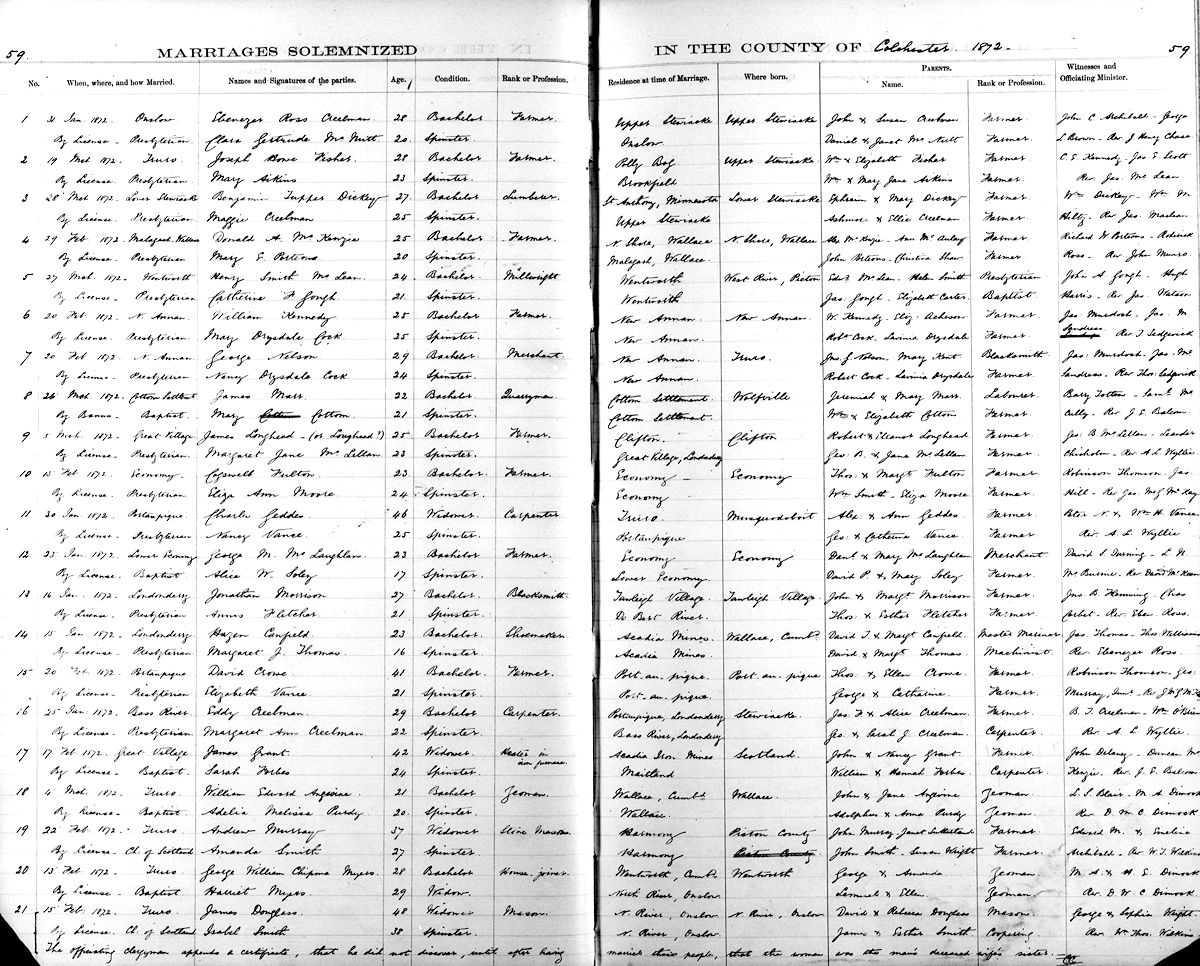 59. MARRIAGES SOLEMNIZED IN THE COUNTY OF Colchester 1872. 59
No. When, where, and how Married. Names and Signatures of the parties. Age. Condition. Rank or Profession. Residence at time of Marriage. Where born. PARENTS. Name. Rank or Profession. Witnesses and Officiating Minister.
1 31 Jan. 1872. Onslow Ebenezer Ross Creelman 28 Bachelor Farmer. Upper Stewiacke Upper Stewiacke John & Susan Creelman Farmer John C Archibald - George
By License - Presbyterian Clara Gertrude Mc Nutt 20. Spinster. Onslow Daniel & Janet Mc Nutt Farmer L Brown - Rev J Henry Chase
2 19 Mch 1872. Truro Joseph Bone Fisher 28 Bachelor Farmer. Polly Bog Upper Stewiacke Wm & Elizabeth Fisher Farmer C. E. Kennedy. Jas E. Scott
By License. Presbyterian Mary Aikins 23 Spinster. Brookfield Wm & Mary Jane Aikins Farmer Rev Jas. Mc Lean
3 28 Mch 1872. Lower Stewiacke Benjamin Tupper Dickey 27. Bachelor Lumberer. St Anthony, Minnesota Lower Stewiacke Ephraim & Mary Dickey Farmer Wm Dickey - Wm M
By License. Presbyterian Maggie Creelman 25 Spinster. Upper Stewiacke Ashmore & Ellie Creelman Farmer Hiltz - Rev Jas. Maclean
4 29 Feb 1872. Malagash, Wallace Donald A. Mc Kenzie 25 Bachelor Farmer. N. Shore, Wallace N. Shore, Wallace Alex Mc Kenzie - Ann Mc Aulay Farmer Richard W Porteous - Roderick
By License. Presbyterian Mary E Porteous 20 Spinster. Malagash, Wallace. John Porteous. Christina Shaw Farmer Ross - Rev John Munro.
5 27 Mch. 1872. Wentworth Henry Smith Mc Lean. 24. Bachelor Millwright Wentworth West River, Pictou Edwd Mc Lean. Helen Smith Presbyterian John A Gough. Hugh
By License - Presbyterian Catherine F Gough 21. Spinster. Wentworth Jas Gough - Elizabeth Carter. Baptist Harris - Rev Jas. Watson
6 20 Feb 1872. N. Annan. William Kennedy 25 Bachelor Farmer. New Annan. New Annan. W. Kennedy. Eliz. Acheson Farmer Jas Murdoch. Jas. M
By License. Presbyterian Mary Drysdale Cock 25 Spinster. New Annan. Robt Cock. Lavinia Drysdale Farmer Rev T Sedgewick
7 20 Feb 1872 N. Annan George Nelson 29 Bachelor Merchant. New Annan Truro. Jno J. Nelson. Mary Kent Blacksmith Jas. Murdoch. Jas. Mc
By License - Presbyterian Nancy Drysdale Cock 24 Spinster. New Annan. Robert Cock - Lavinia Drysdale Farmer Landress - Rev Thos Sedgwick
8 26 Mch. 1872. Cottom Settlmt James Marr. 22 Bachelor Quarryman. Cottom Settlement Wolfville Jeremiah & Mary Marr. Labourer Barry Totten - Saml Mc
By Banns - Baptist. Mary Cottom. 21 Spinster. Cottom Settlement Wm & Elizabeth Cottom Farmer Cully - Rev J. E. Balcom.
9 5 Mch. 1872. Great Village James Longhead - (or Loughead?) 25 Bachelor Farmer. Clifton. Clifton Robert & Eleanor Longhead Farmer Jas B Mc Lellan - Leander
By License. Presbyterian Margaret Jane Mc Lellan 23 Spinster. Great Village, Londonderry Geo. B. & Jane Mc Lellan Farmer Chisholm - Rev A L Wyllie
10 15 Feb 1872. Economy. Cogswell Fulton 23. Bachelor Farmer. Economy Economy Thos. & Margt Fulton Farmer Robinson Thomson. Jas.
By License. Presbyterian Eliza Ann Moore 24 Spinster. Economy Wm Smith - Eliza Moore Farmer. Hill - Rev Jas. Mc G Mc Kay
11 30 Jan. 1872. Portaupique. Charles Geddes 46 Widower Carpenter Truro. Musquodoboit Alex. & Ann Geddes Farmer Peter N. & Wm H. Vance
By License. Presbyterian Nancy Vance. 25 Spinster. Portaupique Geo. & Catherine Vance Farmer Rev. A. L. Wyllie
12 23 Jan. 1872. Lower Economy George M. Mc Laughlan. 23 Bachelor Farmer. Economy Economy Danl & Mary Mc Laughlan Merchant David S Durning - L N
By License. Baptist. Alice W. Soley 17 Spinster. Lower Economy. David P. & Mary Soley Farmer. Mc Burnie. Rev David Mc Keen
13 16 Jan. 1872. Londonderry Jonathan Morrison 27 Bachelor Blacksmith Fareleigh Village Fareleigh Village John & Margt Morrison Farmer Jno B. Flemming. Chas
By License. Presbyterian Annis Fletcher 21 Spinster. De Bert River. Thos. & Esther Fletcher Farmer Corbet - Rev Eben Ross.
14 15 Jan 1872. Londonderry Hazen Canfield. 23 Bachelor Shoemaker Acadia Mines Wallace, Cumbd David T. & Margt Canfield. Master Mariner Jas. Thomas - Thos Williams
By License. Presbyterian Margaret J. Thomas. 16 Spinster. Acadia Mines. David & Margt Thomas. Machinist Rev. Ebenezer Ross.
15 20 Feb. 1872. Portaupique David Crowe 41 Bachelor Farmer. Port. au. pique. Port. au. pique Thos. & Ellen Crowe. Farmer Robinson Thomson. Geo.
By License. Presbyterian Elizabeth Vance 21 Spinster. Port. au. pique. George & Catharine. Farmer Murray, Junr. - Rev
16 25 Jan. 1872. Bass River. Eddy Creelman. 29 Bachelor Carpenter. Portaupique, Londonderry Stewiacke. Jas. F & Alice Creelman. Farmer. B. F. Creelman - Wm O'Brien
By License. Presbyterian Margaret Ann Creelman 22 Spinster. Bass River, Londonderry Geo. & Sarah J. Creelman Carpenter Rev. A. L. Wyllie.
17 17 Feb 1872. Great Village James Grant. 42 Widower. Heater in iron furnace. Acadia Iron Mines Scotland. John & Nancy Grant Farmer John Delaney - Duncan Mc
By License - Baptist. Sarah Forbes 24 Spinster. Maitland William & Hannah Forbes. Carpenter Kenzie. Rev. J. E. Balcom
18 4 Mch. 1872. Truro. William Edward Angevine. 21 Bachelor Yeoman. Wallace, Cumbd Wallace. John & Jane Angevine Yeoman L. S. Blair - M. A. Dimock
By License - Baptist Adelia Melissa Purdy 20. Spinster. Wallace. Adolphus & Anna Purdy Yeoman. Rev. D. W. C. Dimock
19 22 Feb. 1872. Truro. Andrew Murray 37 Widower Stone Mason. Harmony Pictou County John Murray Janet Sutherland Farmer. Edward M. & Emelia
By License - Ch. of Scotland Amanda Smith 27 Spinster Harmony Pictou County. John Smith - Susan Wright Farmer. Archibald - Rev. W. T. Wilkins
20 13 Feb 1872. Truro. George William Chipman Myers. 28 Bachelor House-joiner. Wentworth, Cumbd. Wentworth George & Amanda. Yeoman. M. A. & H. E. Dimock
By License - Baptist Harriet Myers. 29 Widow. North River, Onslow. Lemuel & Ellen. Yeoman Rev. D. W. C Dimock
21 15 Feb. 1872. Truro James Douglass 48 Widower Mason. N. River, Onslow. N. River, Onslow David & Rebecca Douglass Mason. George & Sophia Wright.
By License. Ch. of Scotland Isabel Smith 38 Spinster. N. River, Onslow. James & Esther Smith Coopering. Rev. Wm Thos. Wilkins
The officiating clergyman appends a certificate, that he did not discover, until after having married these people, that the woman was the man's deceased wife's sister.